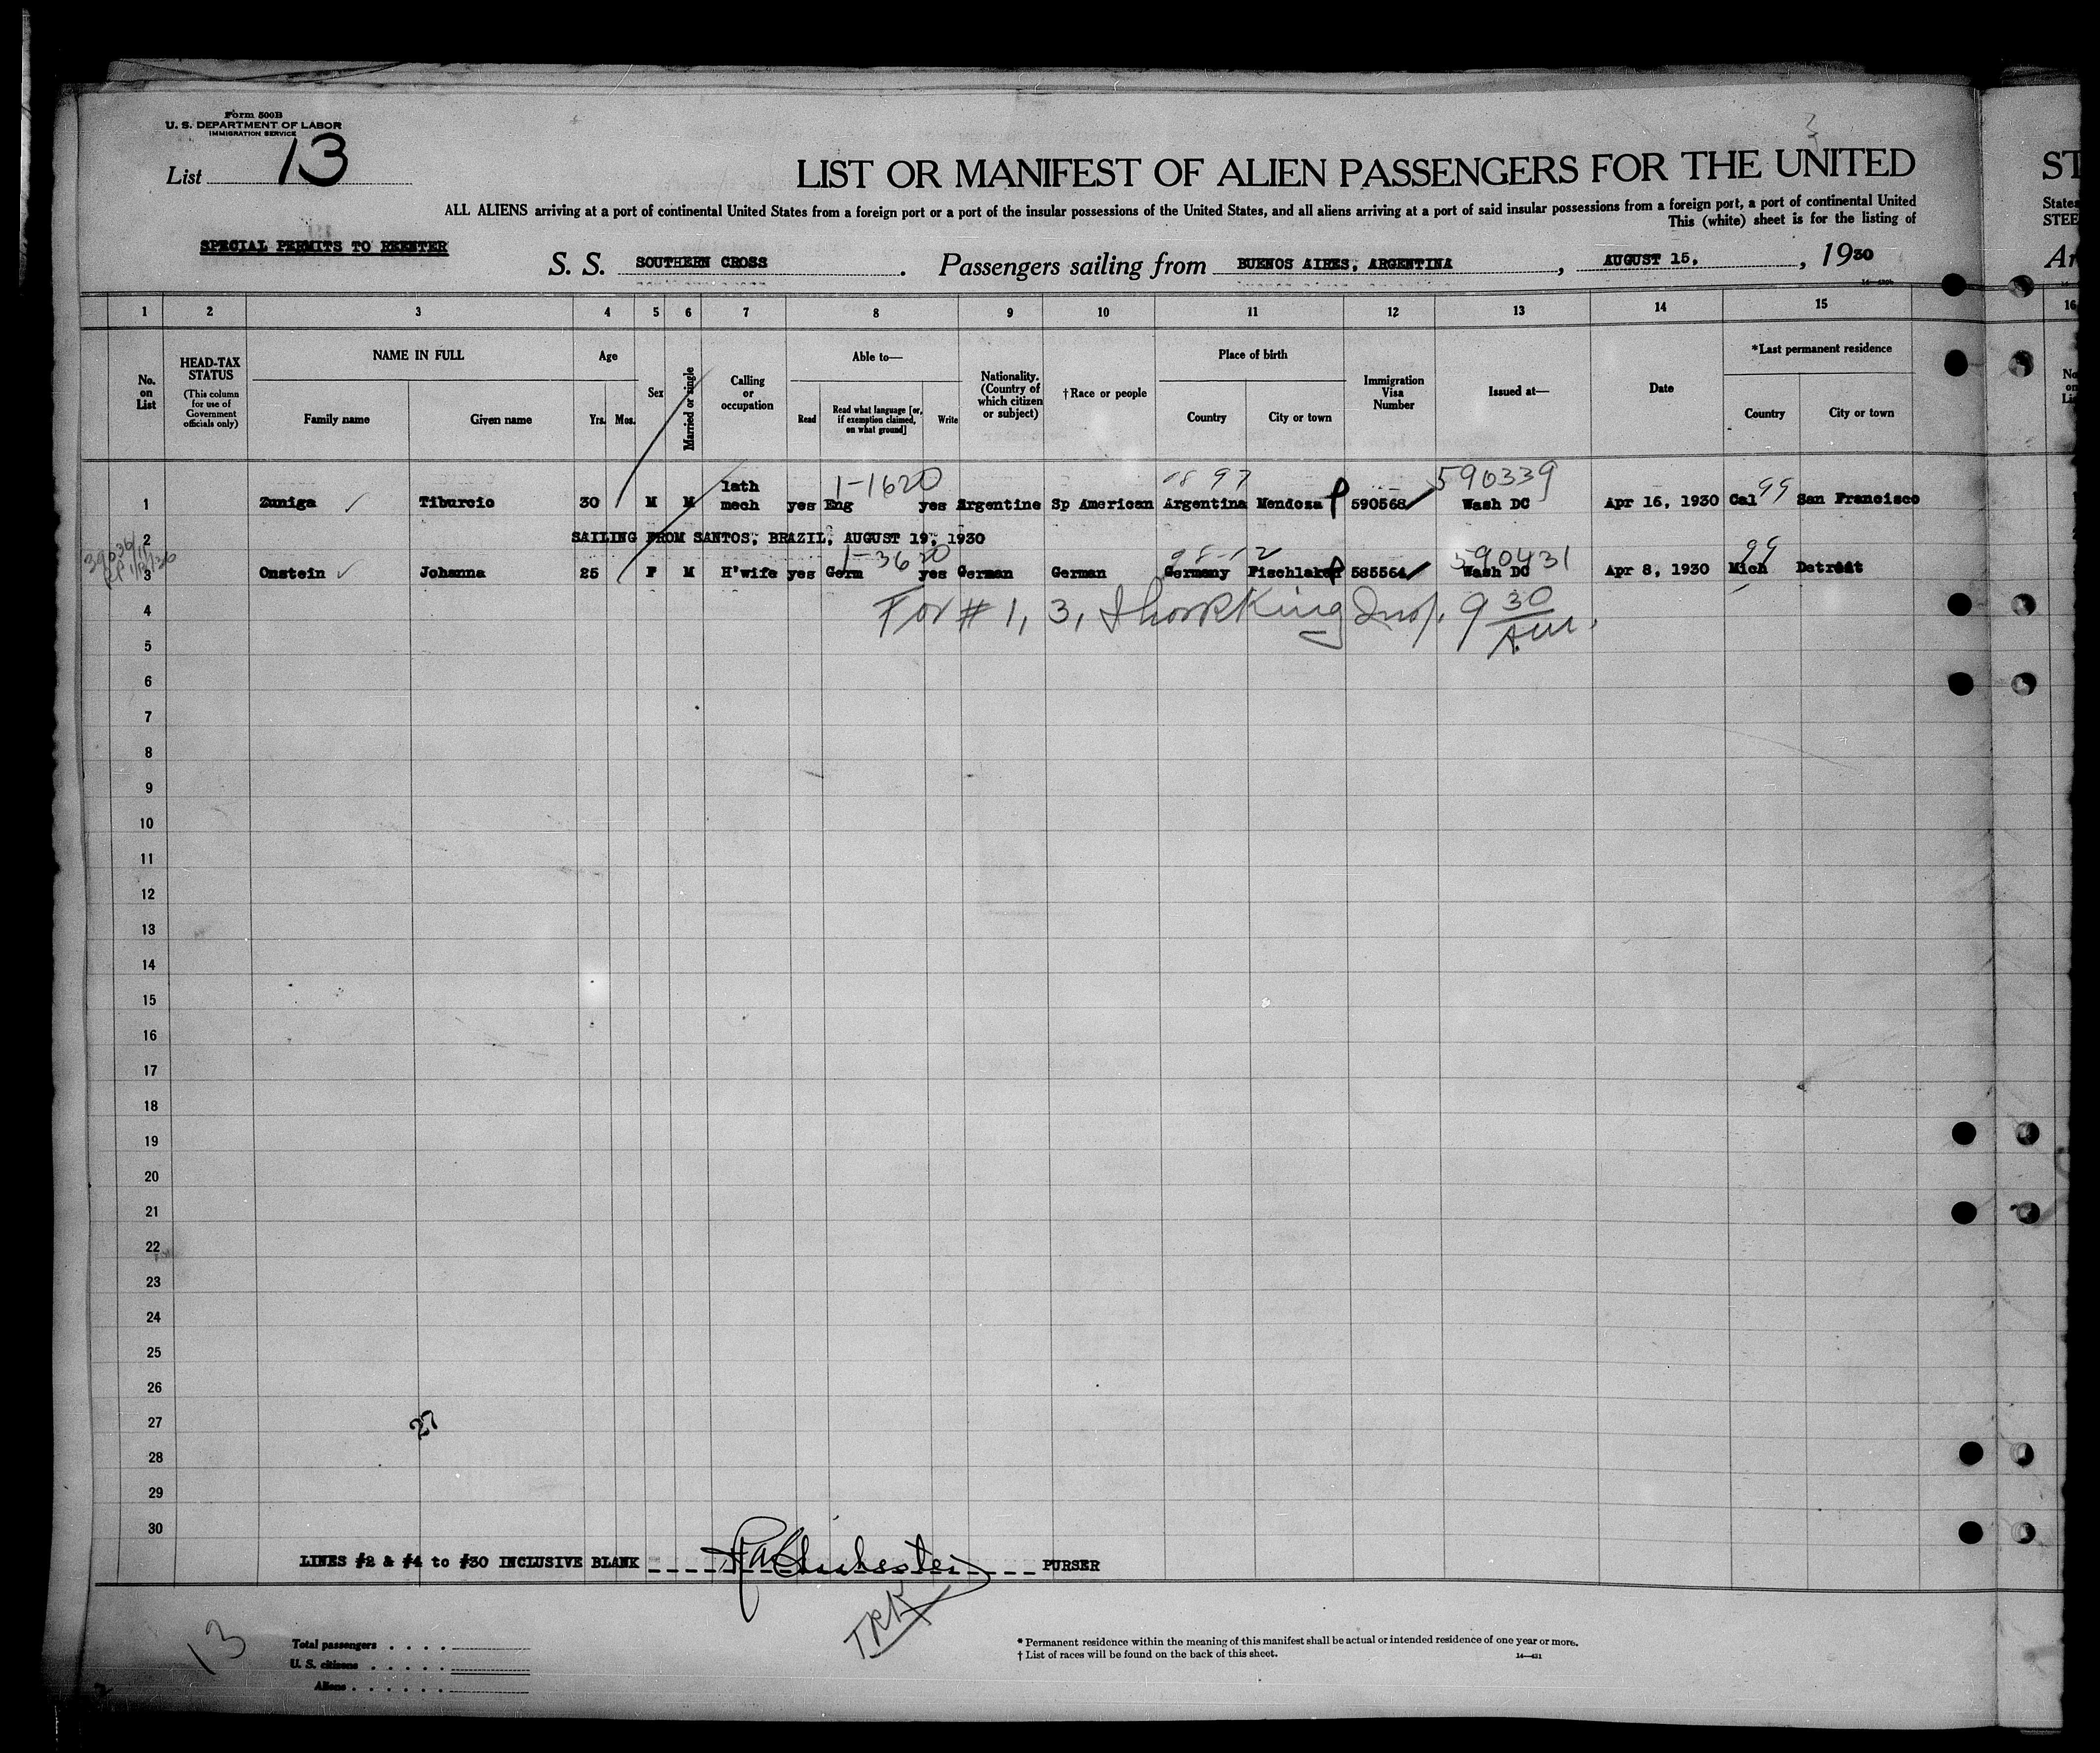 Form 500B
U. S. DEPARTMENT OF LABOR
IMMIGRATION SERVICE
List 13
LIST OR MANIFEST OF ALIEN PASSENGERS FOR THE UNITED
ST
ALL ALIENS arriving at a port of continental United States from a foreign port or a port of the insular possessions of the United States, and all aliens arriving at a port of said insular possessions from a foreign port, a port of continental United
States
This (white) sheet is for the listing of
STEE
SPECIAL PERMITS TO REENTER
S. S. SOUTHERN CROSS. Passengers sailing from BUENOS AIRES, ARGENTINA, AUGUST 15, , 1930
Ar
1 2 3 4 5 6 7 8 9 10 11 12 13 14 15 16
No. on List
HEAD-TAX STATUS
(This column for use of Government officials only)
NAME IN FULL
Family name
Given name
Age
Yrs. Mos.
Sex
Married or single
Calling or occupation
Able to—
Read
Read what language [or, if exemption claimed, on what ground]
Write
Nationality. (Country of which citizen or subject)
†Race or people
Place of birth
Country
City or town
Immigration Visa Number
Issued at—
Date
*Last permanent residence
Country
City or town
1-1620 590339 99
1 Zuniga Tiburcio 30 M M lath mech yes Eng yes Argentine Sp American Argentina Mendoza 590568 Wash DC Apr 16, 1930 Cal San Francisco
2 SAILING FROM SANTOS, BRAZIL, AUGUST 19, 1930
1-3620 590431 99
3 Onstein Johanna 25 F M H'wife yes Germ yes German German Germany Fischlaken 585564 Wash DC Apr 8, 1930 Mich Detroit
4 For # 1, 3, Insp. 9 30 A.M.
5
6
7
8
9
10
11
12
13
14
15
16
17
18
19
20
21
22
23
24
25
26
27 27
28
29
30
LINES #2 & #4 to #30 INCLUSIVE BLANK PURSER
TRK
13
Total passengers
U. S. citizens
Aliens
* Permanent residence within the meaning of this manifest shall be actual or intended residence of one year or more.
† List of races will be found on the back of this sheet.
14—431